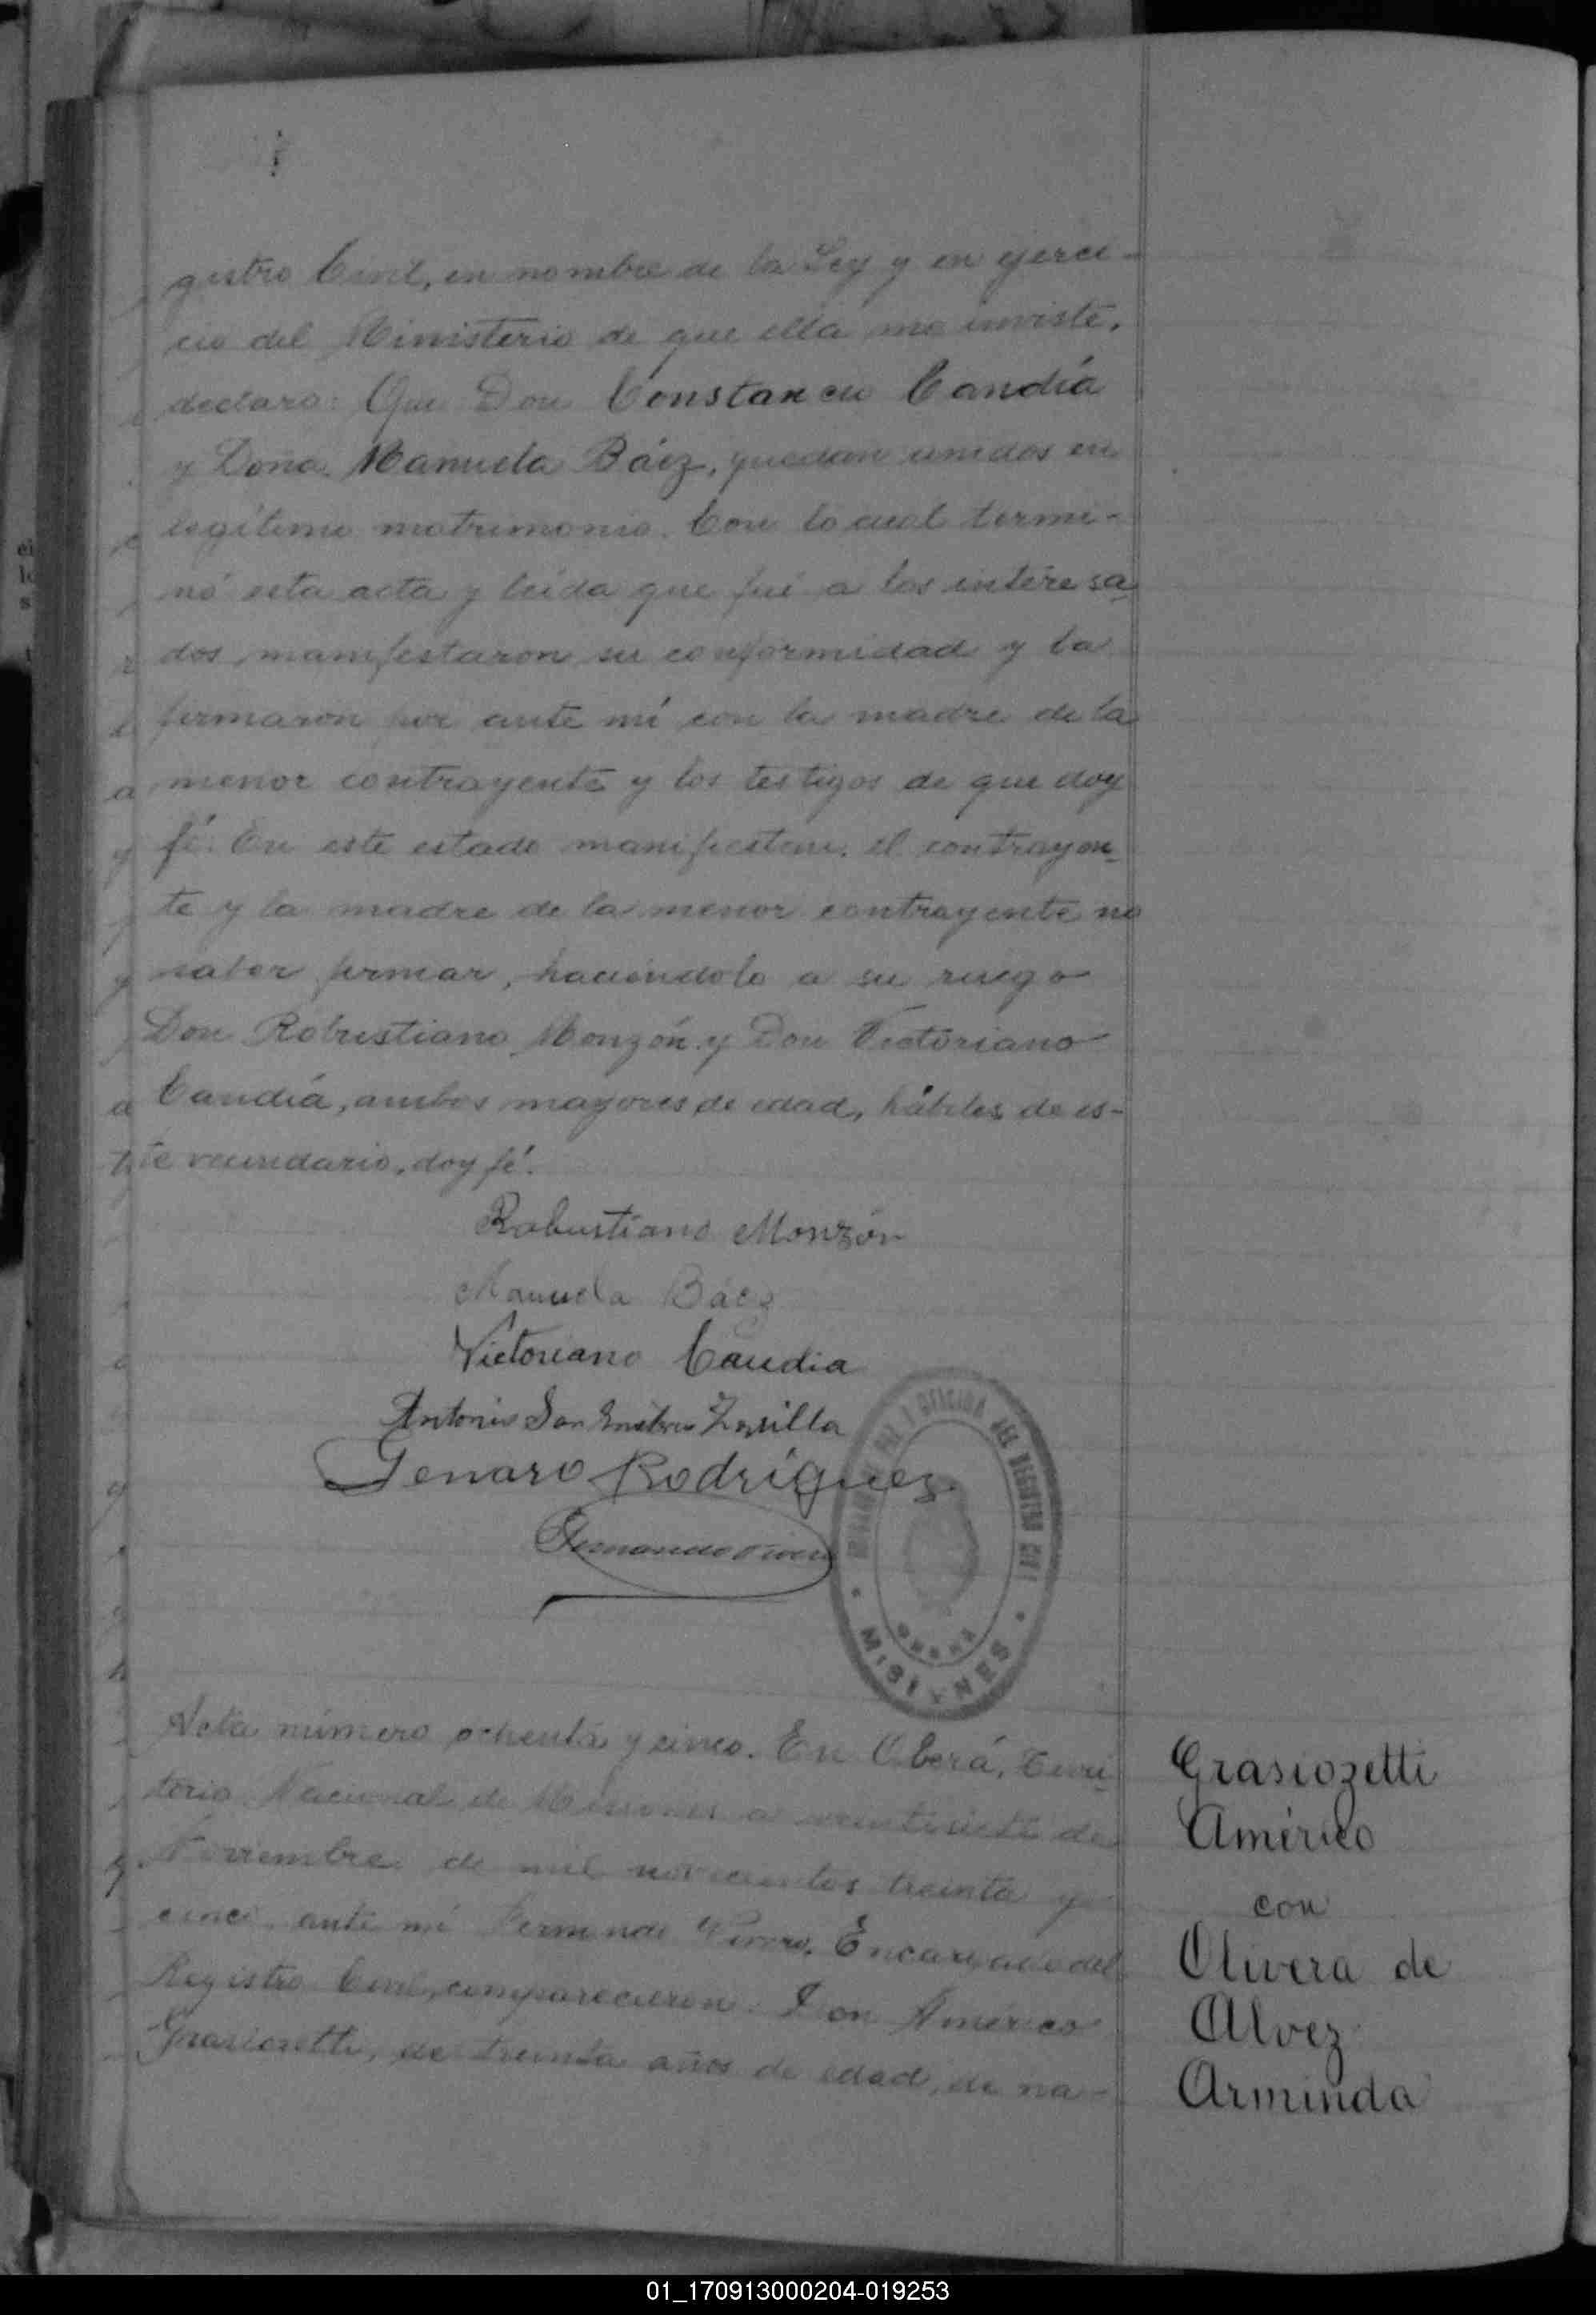 gistro Civil, en nombre de la Ley y en ejerci-
cio del Ministerio de que ella me inviste,
declaro: Que Don Constancio Candía
y Doña Manuela Báez, quedan unidos en
legítimo matrimonio. Con lo cual termi-
nó esta acta y leída que fué a los interesa-
dos, manifestaron su conformidad y la
firmaron por ante mí con la madre de la
menor contrayente y los testigos de que doy
fé. En este estado manifiestan el contrayen-
te y la madre de la menor contrayente no
saber firmar, haciéndolo a su ruego
Don Robustiano Monzón y Don Victoriano
Candía, ambos mayores de edad, hábiles de es-
te vecindario, doy fé.
Robustiano Monzón
Manuela Báez
Victoriano Candia
Antonio San
Genaro Rodríguez
Fernando
OFICINA DEL REGISTRO CIVIL
MISIONES
Acta número ochenta y cinco. En Oberá, Terri-
torio Nacional de Misiones a veintisiete de
Noviembre de mil novecientos treinta y
cinco, ante mí Encargado del
Registro Civil, comparecieron: Don Américo
Grasiozetti, de treinta años de edad, de na-
Grasiozetti
Américo
con
Olivera de
Alvez
Arminda
01_170913000204-019253